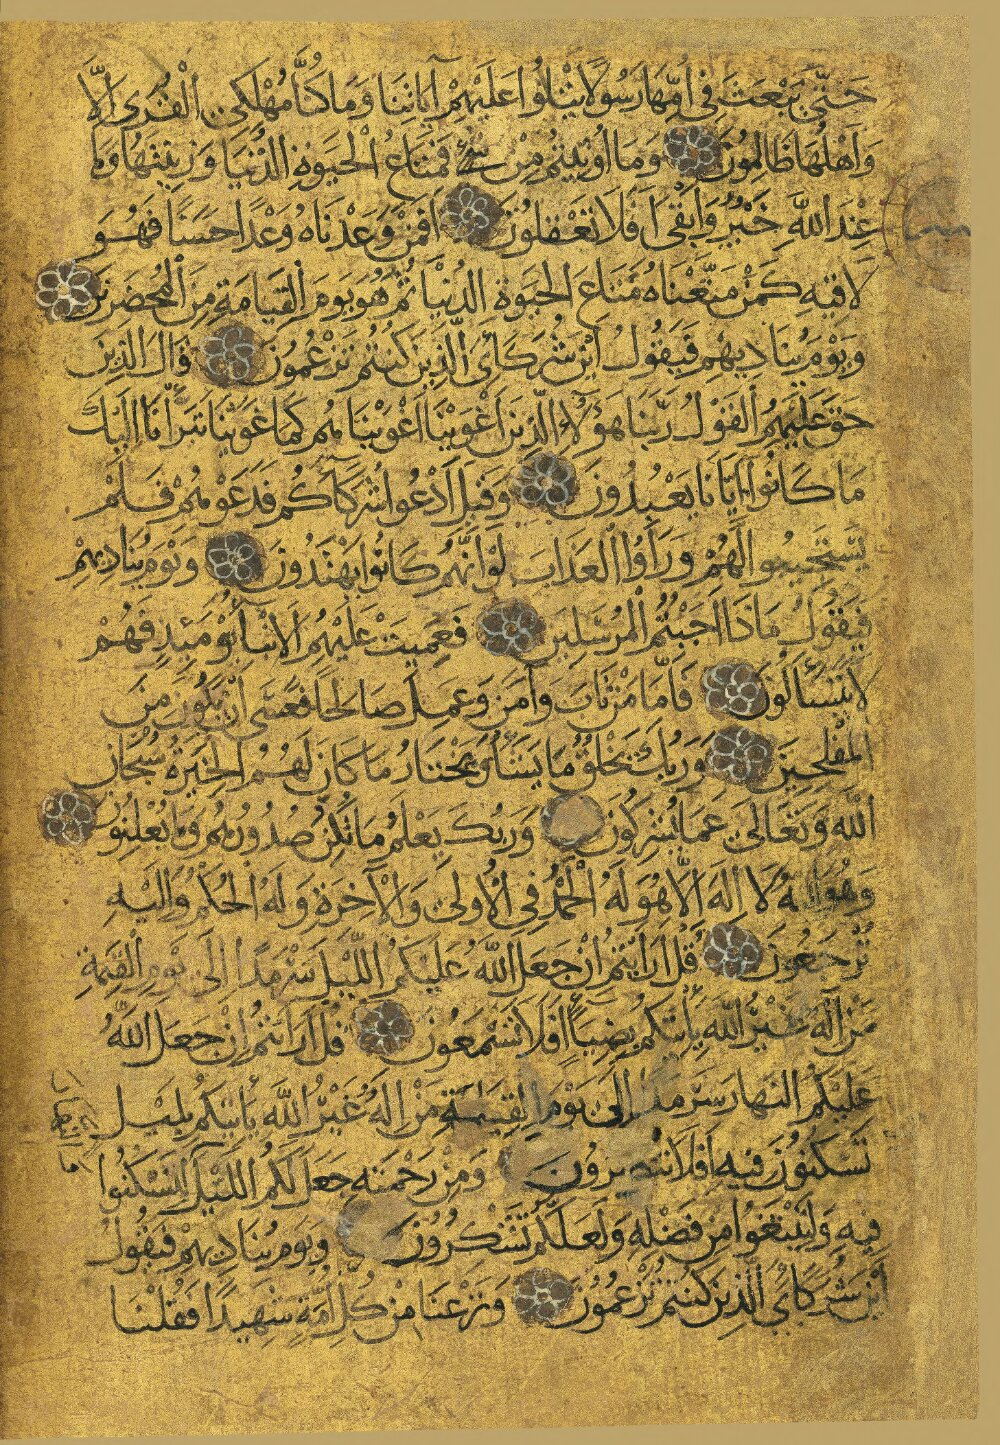 حَتَّى يَبْعَثَ فِي أُمِّهَا رَسُولًا يَتْلُوا عَلَيْهِمْ آيَاتِنَا وَمَا كُنَّا مُهْلِكِي الْقُرَى إِلَّا
وَأَهْلُهَا ظَالِمُونَ وَمَا أُوتِيتُمْ مِنْ شَيْءٍ فَمَتَاعُ الْحَيَوةِ الدُّنْيَا وَزِينَتُهَا وَمَا
عِنْدَ اللَّهِ خَيْرٌ وَأَبْقَى أَفَلَا تَعْقِلُونَ أَفَمَنْ وَعَدْنَاهُ وَعْدًا حَسَنًا فَهُوَ
لَاقِيهِ كَمَنْ مَتَّعْنَاهُ مَتَاعَ الْحَيَوةِ الدُّنْيَا ثُمَّ هُوَ يَوْمَ الْقِيَامَةِ مِنَ الْمُحْضَرِينَ
وَيَوْمَ يُنَادِيهِمْ فَيَقُولُ أَيْنَ شُرَكَائِيَ الَّذِينَ كُنْتُمْ تَزْعُمُونَ قَالَ الَّذِينَ
حَقَّ عَلَيْهِمُ الْقَوْلُ رَبَّنَا هَؤُلَاءِ الَّذِينَ أَغْوَيْنَا أَغْوَيْنَاهُمْ كَمَا غَوَيْنَا تَبَرَّأْنَا إِلَيْكَ
مَا كَانُوا إِيَّانَا يَعْبُدُونَ وَقِيلَ ادْعُوا شُرَكَاءَكُمْ فَدَعَوْهُمْ فَلَمْ
يَسْتَجِيبُوا لَهُمْ وَرَأَوُا الْعَذَابَ لَوْ أَنَّهُمْ كَانُوا يَهْتَدُونَ وَيَوْمَ يُنَادِيهِمْ
فَيَقُولُ مَاذَا أَجَبْتُمُ الْمُرْسَلِينَ فَعَمِيَتْ عَلَيْهِمُ الْأَنْبَاءُ يَوْمَئِذٍ فَهُمْ
لَا يَتَسَاءَلُونَ فَأَمَّا مَنْ تَابَ وَآمَنَ وَعَمِلَ صَالِحًا فَعَسَى أَنْ يَكُونَ مِنَ
الْمُفْلِحِينَ وَرَبُّكَ يَخْلُقُ مَا يَشَاءُ وَيَخْتَارُ مَا كَانَ لَهُمُ الْخِيَرَةُ سُبْحَانَ
اللَّهِ وَتَعَالَى عَمَّا يُشْرِكُونَ وَرَبُّكَ يَعْلَمُ مَا تُكِنُّ صُدُورُهُمْ وَمَا يُعْلِنُونَ
وَهُوَ اللَّهُ لَا إِلَهَ إِلَّا هُوَ لَهُ الْحَمْدُ فِي الْأُولَى وَالْآخِرَةِ وَلَهُ الْحُكْمُ وَإِلَيْهِ
تُرْجَعُونَ قُلْ أَرَأَيْتُمْ إِنْ جَعَلَ اللَّهُ عَلَيْكُمُ اللَّيْلَ سَرْمَدًا إِلَى يَوْمِ الْقِيَمَةِ
مَنْ إِلَهٌ غَيْرُ اللَّهِ يَأْتِيكُمْ بِضِيَاءٍ أَفَلَا تَسْمَعُونَ قُلْ أَرَأَيْتُمْ إِنْ جَعَلَ اللَّهُ
عَلَيْكُمُ النَّهَارَ سَرْمَدًا إِلَى يَوْمِ الْقِيَمَةِ مَنْ إِلَهٌ غَيْرُ اللَّهِ يَأْتِيكُمْ بِلَيْلٍ
تَسْكُنُونَ فِيهِ أَفَلَا تُبْصِرُونَ وَمِنْ رَحْمَتِهِ جَعَلَ لَكُمُ اللَّيْلَ لِتَسْكُنُوا
فِيهِ وَلِتَبْتَغُوا مِنْ فَضْلِهِ وَلَعَلَّكُمْ تَشْكُرُونَ وَيَوْمَ يُنَادِيهِمْ فَيَقُولُ
أَيْنَ شُرَكَائِيَ الَّذِينَ كُنْتُمْ تَزْعُمُونَ وَنَزَعْنَا مِنْ كُلِّ أُمَّةٍ شَهِيدًا فَقُلْنَا